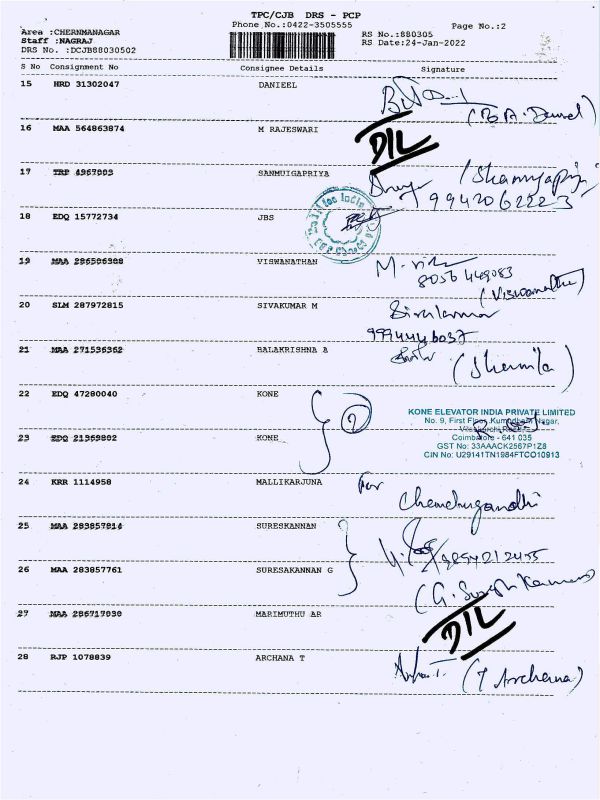 TPC/CJB DRS - PCP
Phone No.:0422-3505555
Page No.:2
Area :CHERNMANAGAR
Staff :NAGRAJ
DRS No. :DCJB88030502
RS No.:880305
RS Date:24-Jan-2022
S No Consignment No Consignee Details Signature
15 HRD 31302047 DANIEEL
16 MAA 564863874 M RAJESWARI DIL
17 TRP 4967003 SANMUIGAPRIYA
9942062223
18 EDQ 15772734 JBS
19 MAA 286586388 VISWANATHAN
8056449083
(Viswanathan)
20 SLM 287972815 SIVAKUMAR M Sivakumar
9994446037
21 MAA 271536362 BALAKRISHNA A (Sharmila)
22 EDQ 47280040 KONE 2
KONE ELEVATOR INDIA PRIVATE LIMITED
No. 9, First Floor, Kumudham Nagar,
23 EDQ 21369802 KONE
Coimbatore - 641 035
GST No: 33AAACK2567P1Z8
CIN No: U29141TN1984FTCO10913
24 KRR 1114958 MALLIKARJUNA For
25 MAA 283857814 SURESKANNAN
26 MAA 283857761 SURESAKANNAN G
27 MAA 286717030 MARIMUTHU AR DIL
28 RJP 1078839 ARCHANA T (T Archana)